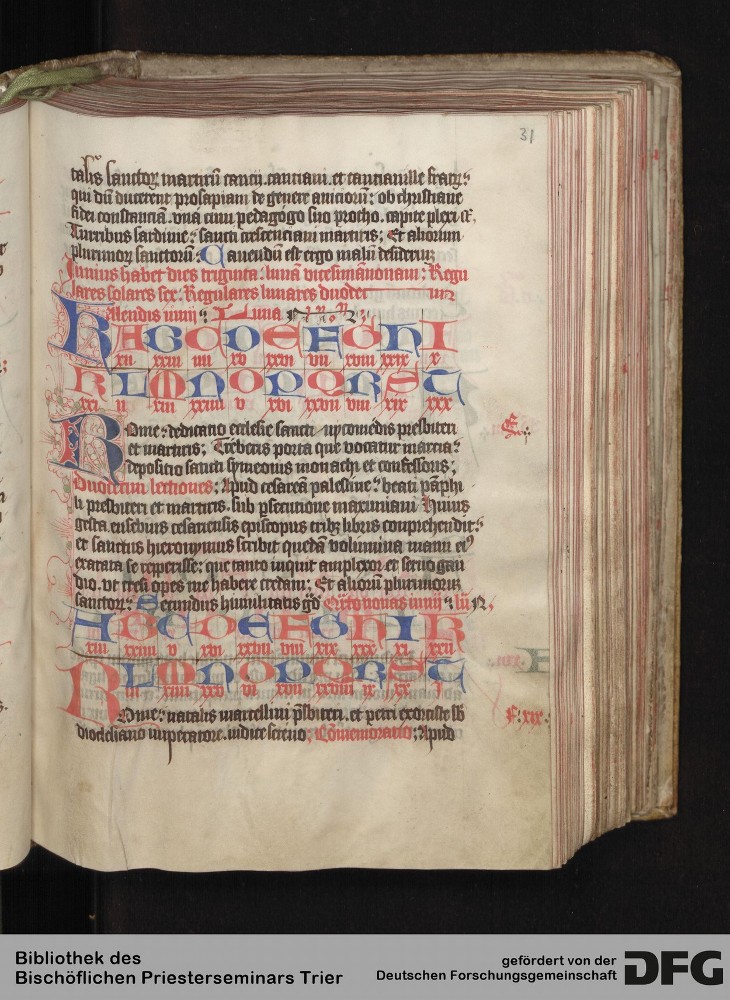 31
talis sanctoꝝ martirū cancii. canciani. et cancianille fratꝝ:
qui dū ducerent prosapiam de genere aniciorū: ob christiane
fidei constanciā. vna cum pedagogo suo protho. capite plexi sūt.
Turribus sardinie: sancti crescenciani martiris; Et aliorum
plurimoꝝ sanctorū: Cauendū est ergo malū desideriū;
Junius habet dies triginta. lunā vicesimānonam: Regu
lares solares sex. Regulares lunares duodecim
Kalendis iunij: Luna
A B C D E F G H I
xii xxiii iiii xv xxvi vii xviii xxix x
K L M N O P Q R S T
xxi ii xiii xxiiii v xvi xxvii viii xix xxx
Rome: dedicatio ecclesie sancti nycomedis presbiteri
et martiris; Treberis porta que vocatur marcia:
depositio sancti symeonis monachi et confessoris;
Duodecim lectiones; Apud cesareā palestine: beati pāphi
li presbiteri et martiris. sub ꝑsecutione maximiani. Huius
gesta. eusebius cesariensis episcopus tribꝫ libris comprehendit:
et sanctus hieronymus scribit quedā volumina manu eiꝰ
exarata se reperisse: que tanto inquit amplexor et seruo gau
dio. vt cresi opes me habere credam; Et aliorū plurimorum
sanctoꝝ: Secundus humilitatis gᵈ Quarto nonas iunij: lūn.
A B C D E F G H I K
xiii xxiiii v xvi xxvii viii xix xxx xi xxii
L M N O P Q R S T
iii xiiii xxv vi xvii xxviii ix xx i
Rome: natalis marcellini p̄sbiteri. et petri exorciste sb
diocleciano imperatore. iudice sereno; Cōmemoratio; Apud
F. xix.
Bibliothek des
Bischöflichen Priesterseminars Trier
gefördert von der
Deutschen Forschungsgemeinschaft
DFG